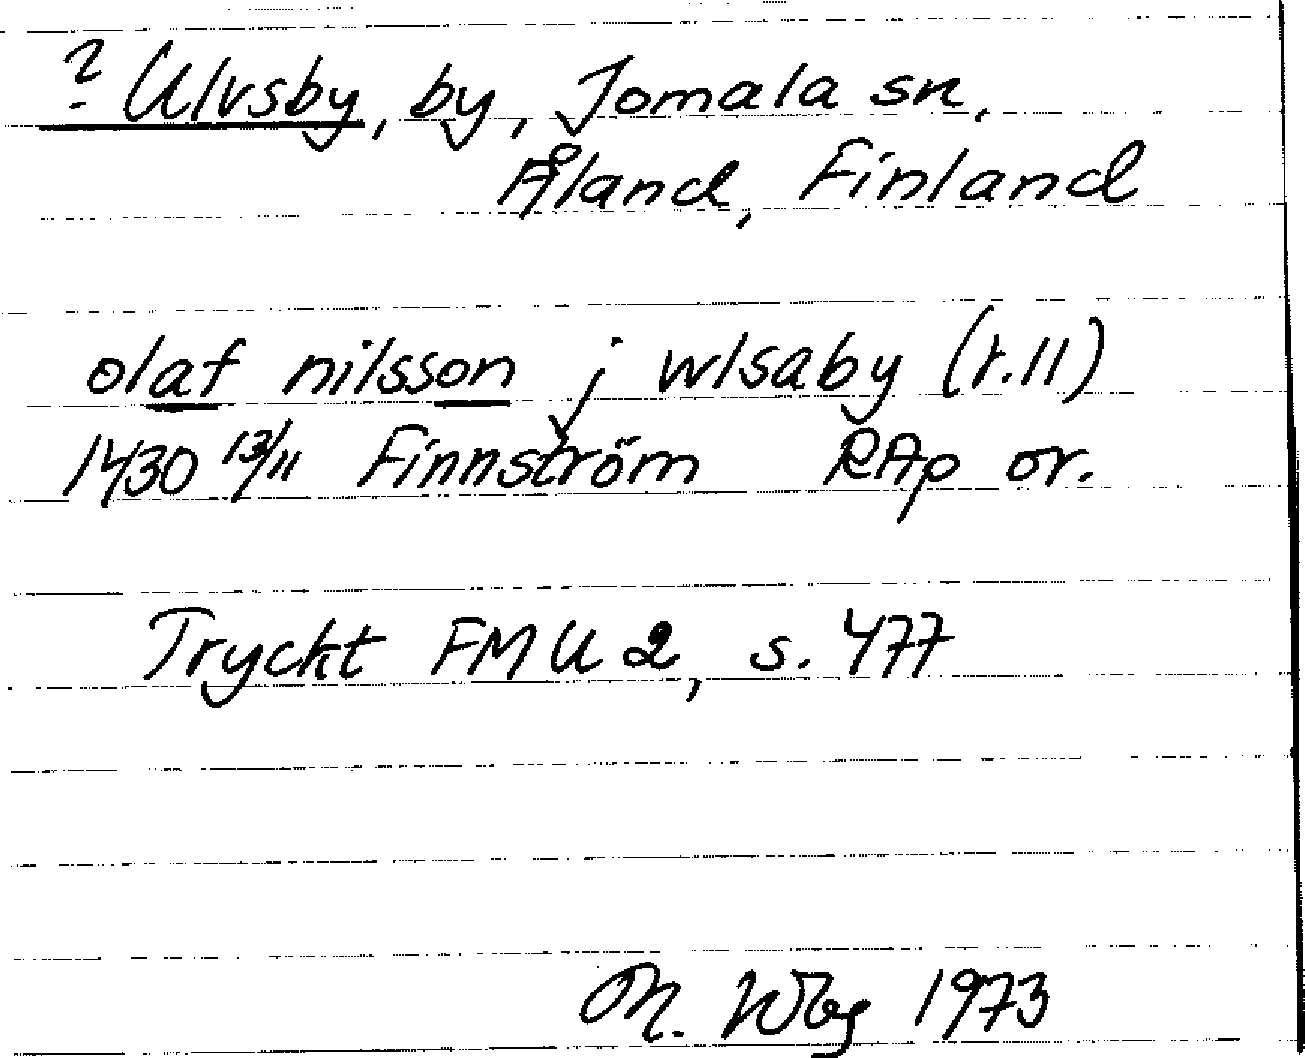 ? Ulvsby, by, Jomala sn,
Åland, Finland
olaf nilsson j wlsaby (r.11)
1430 13/11 Finnström RAp or.
Tryckt FMU 2, s. 477
M. Wbg 1973